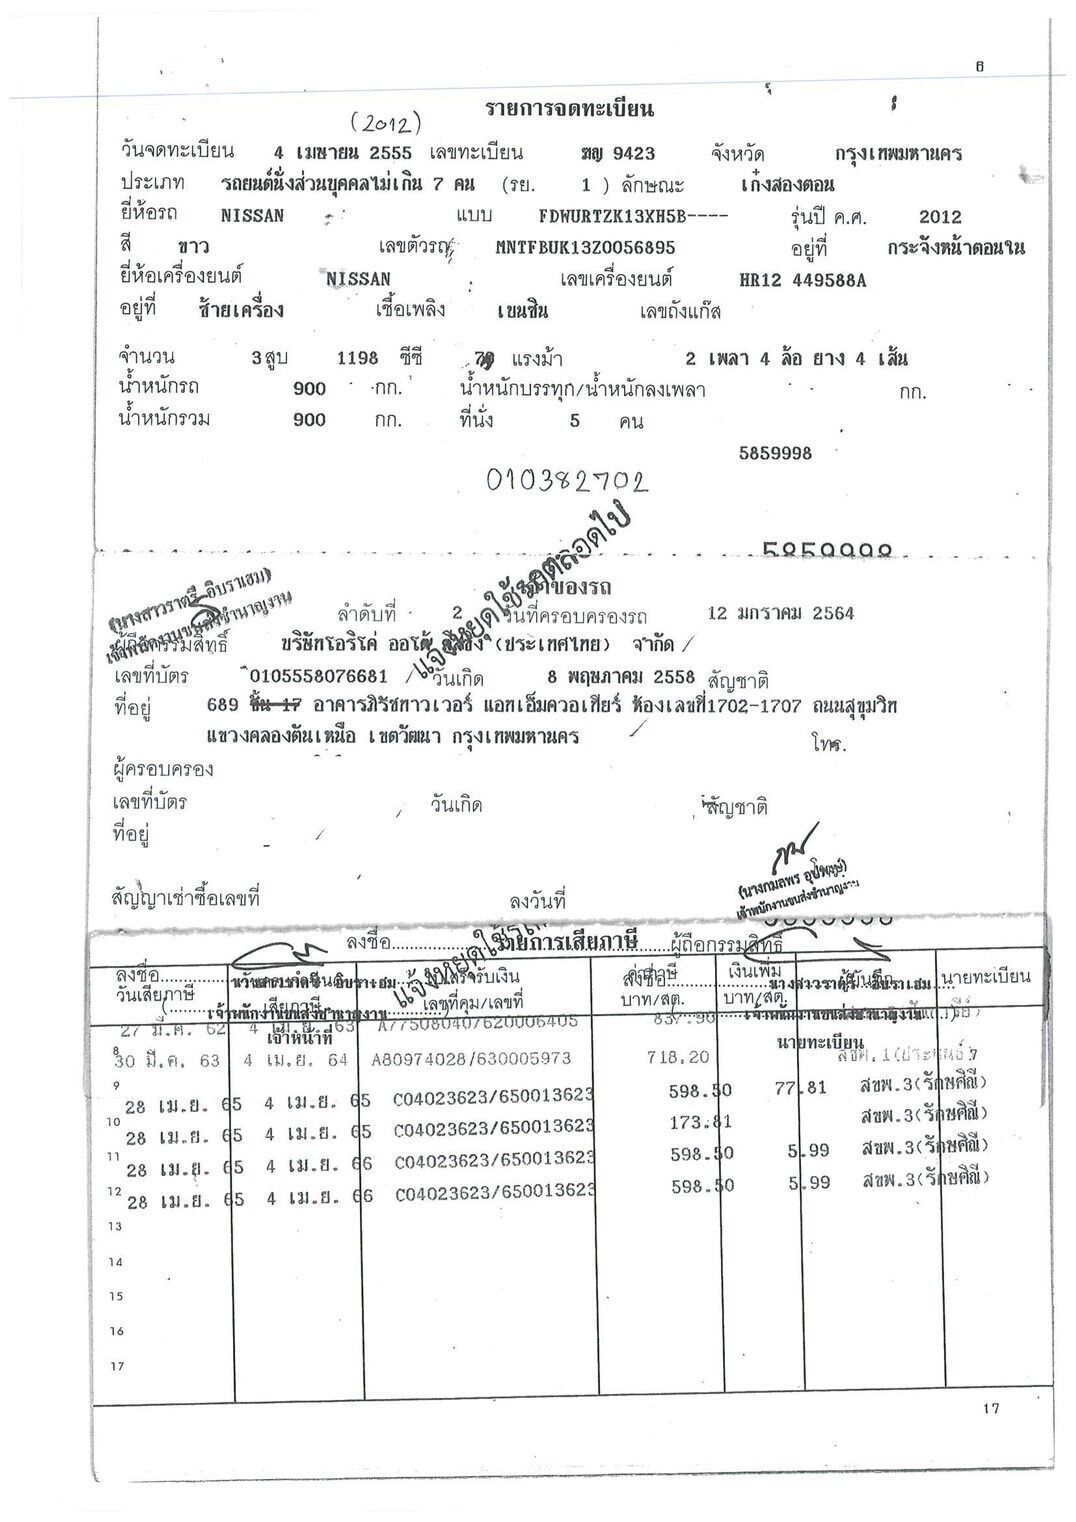 6
รายการจดทะเบียน
(2012)
วันจดทะเบียน 4 เมษายน 2555 เลขทะเบียน ฆญ 9423 จังหวัด กรุงเทพมหานคร
ประเภท รถยนต์นั่งส่วนบุคคลไม่เกิน 7 คน (รย. 1 ) ลักษณะ เก๋งสองตอน
ยี่ห้อรถ NISSAN แบบ FDWURTZK13XH5B---- รุ่นปี ค.ศ. 2012
สี ขาว เลขตัวรถ MNTFBUK13Z0056895 อยู่ที่ กระจังหน้าตอนใน
ยี่ห้อเครื่องยนต์ NISSAN เลขเครื่องยนต์ HR12 449588A
อยู่ที่ ซ้ายเครื่อง เชื้อเพลิง เบนซิน เลขถังแก๊ส
จำนวน 3 สูบ 1198 ซีซี แรงม้า 2 เพลา 4 ล้อ ยาง 4 เส้น
น้ำหนักรถ 900 กก. น้ำหนักบรรทุก/น้ำหนักลงเพลา กก.
น้ำหนักรวม 900 กก. ที่นั่ง 5 คน
5859998
010382702
แจ้งหยุดใช้รถตลอดไป
5859998
(นางสาวราตรี อิบราเฮม)
เจ้าพนักงานขนส่งชำนาญงาน
เจ้าของรถ
ลำดับที่ 2 วันที่ครอบครองรถ 12 มกราคม 2564
ผู้ถือกรรมสิทธิ์ บริษัทโอริโค่ ออโต้ ลีสซิ่ง (ประเทศไทย) จำกัด
เลขที่บัตร 0105558076681 วันเกิด 8 พฤษภาคม 2558 สัญชาติ
ที่อยู่ 689 ชั้น 17 อาคารภิรัชทาวเวอร์ แอทเอ็มควอเทียร์ ห้องเลขที่1702-1707 ถนนสุขุมวิท
แขวงคลองตันเหนือ เขตวัฒนา กรุงเทพมหานคร โทร.
ผู้ครอบครอง
เลขที่บัตร วันเกิด สัญชาติ
ที่อยู่
(นางกมลพร อุปพงษ์)
เจ้าพนักงานขนส่งชำนาญงาน
สัญญาเช่าซื้อเลขที่ ลงวันที่
5859998
ลงชื่อ ผู้ถือกรรมสิทธิ์
รายการเสียภาษี
แจ้งหยุดใช้รถ
ลงชื่อ ลงชื่อ เงินเพิ่ม นายทะเบียน
วันเสียภาษี เลขที่คุม/เลขที่ บาท/สต. บาท/สต.
นางสาวราตรี อิบราเฮม
เจ้าพนักงานขนส่งชำนาญงาน
เจ้าหน้าที่ นายทะเบียน
27 มี.ค. 62 4 เม.ย. 63 A77508040/620006405 837.90
8 30 มี.ค. 63 4 เม.ย. 64 A80974028/630005973 718.20
9 28 เม.ย. 65 4 เม.ย. 65 C04023623/650013623 598.50 77.81 สขพ.3(รักษศิณี)
10 28 เม.ย. 65 4 เม.ย. 65 C04023623/650013623 173.81 สขพ.3(รักษศิณี)
11 28 เม.ย. 65 4 เม.ย. 66 C04023623/650013623 598.50 5.99 สขพ.3(รักษศิณี)
12 28 เม.ย. 65 4 เม.ย. 66 C04023623/650013623 598.50 5.99 สขพ.3(รักษศิณี)
13
14
15
16
17
17